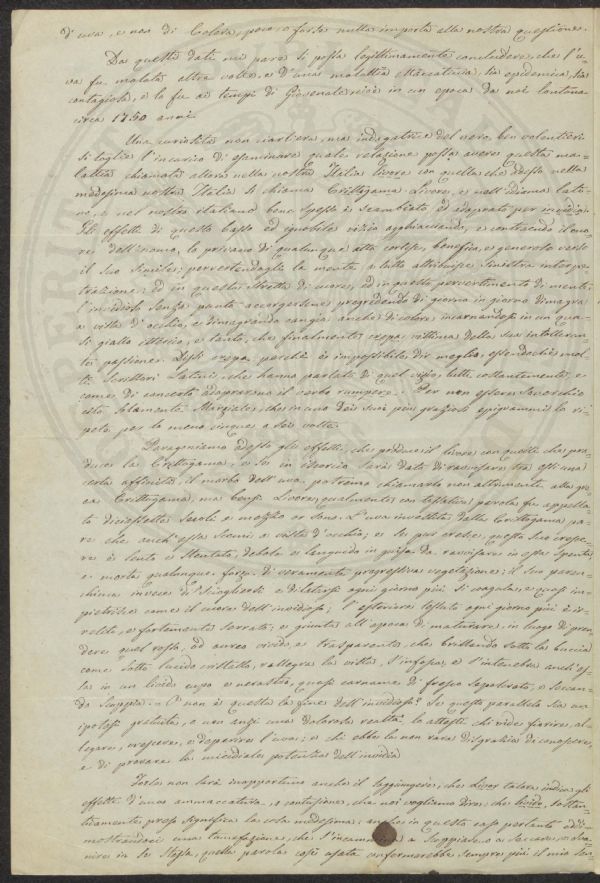 d'uva, e non di Colera, poco o forse nulla importa alla nostra questione.
Da questi dati mi pare si possa legittimamente concludere, che l'u-
va fu malata altre volte, e d'una malattia micidialissima, sia epidemica, sia
contagiosa, e la fu ai tempi di Giovenale cioè in un epoca da noi lontana
circa 1750 anni.
Una curiosità non ciarliera, ma indagatrice del vero, ben volentieri
si toglie l'incarico di esaminare quale relazione possa avere questa ma-
lattia chiamata allora nella nostra Italia livore con quella che adesso nella
medesima nostra Italia si chiama Crittogama. Livore, e nell'idioma lati-
no, e nel nostro italiano bene spesso è scambiato ed adoprato per invidia.
Gli effetti di questo basso ed ignobile vizio agghiacciando, e contraendo il cuo-
re dell'uomo, lo privano di qualunque atto cortese, benefico, e generoso verso
il suo simile; pervertendogli la mente a tutto attribuisce sinistra interpe-
trazione: ed in questa stretta di cuore, ed in questo pervertimento di mente
l'invidioso senza punto accorgersene progredendo di giorno in giorno dimagra
a vista d'occhio, e dimagrando cangia anche di colore, incarnandosi in un qua-
si giallo itterico, e tanto, che finalmente crepa vittima della sua intolleran-
te passione. Dissi crepa perchè è impossibile dir meglio, essendochè mol-
ti Scrittori Latini, che hanno parlato di quel vizio, tutti costantemente, e
come di concerto adoprarono il verbo rumpere. Per non essere soverchio
cito solamente Marziale, che in uno dei suoi più graziosi epigrammi lo ri-
pete per lo meno cinque o sei volte.
Paragoniamo adesso gli effetti, che produce il livore con quelli che pro-
duce la Crittogama, e se in istoria sarà dato di ravvisare tra essi una
certa affinità, il morbo dell'uva potremo chiamarlo non altrimenti alla gre-
ca Crittogama, ma bensì Livore, qualmente con tassativa parola fu appella-
to diciassette secoli e mezzo or sono. L'uva investita dalla Crittogama pa-
re che anch'essa scemi a vista d'occhio; e se pur cresce, questo suo cresce-
re è lento e stentato, debole e languido in guisa da ravvisare in essa spenta
e morta qualunque forza di veramente progressiva vegetazione: il suo paren-
chima invece di sciogliersi e dilatarsi ogni giorno più si coagula, e quasi im-
pietrisce come il cuore dell'invidioso; l'esteriore tessuto ogni giorno più è ir-
retito, e fortemente serrato; e giunta all'epoca di maturare, in luogo di pren-
dere quel rosso, od aureo vivido, e trasparente, che brillando sotto la buccia
come sotto lucido cristallo, rallegra la vista, s'infosca, e s'intenebra anch'es-
sa in un livido cupo e nerastro, quasi carname di fresco sepolcrato, e seccan-
do scoppia. E non è questa la fine dell'invidioso? Se questo parallelo sia un
ipotesi gratuita, o non anzi una dolorosa realtà, lo attesti chi vide fiorire, al-
legare, crescere, e deperire l'uva; e chi ebbe la non rara disgrazia di conoscere,
e di provare la micidiale potenza dell'invidia.
Forse non sarà inopportuno anche il soggiungere, che Livor talora indica gli
effetti d'una ammaccatura, o contusione, che noi vogliamo dire; che livido, sostan-
tivamente preso significa la cosa medesima: anche in questo caso pertanto addi-
mostrandoci una tumefazione, che s'incammina a scoppiare, o a seccare, e sva-
nire in se stessa, quella parola così usata confermerebbe sempre più il mio sen-